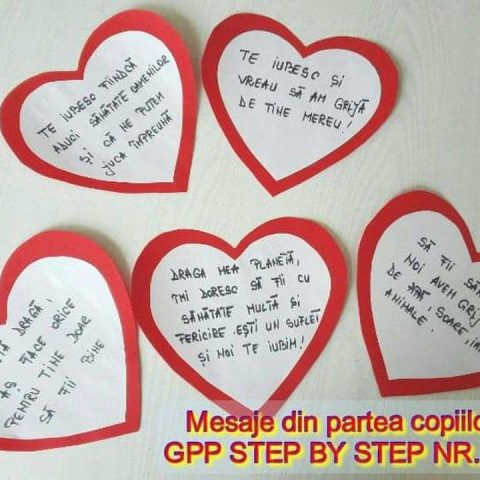 TE IUBESC FIINDCĂ
ADUCI SĂNĂTATE OAMENILOR
ȘI CĂ NE PUTEM
JUCA ÎMPREUNĂ
TE IUBESC ȘI
VREAU SĂ AM GRIJĂ
DE TINE MEREU!
DRAGĂ,
AȘ FACE ORICE
PENTRU TINE DOAR
SĂ FII BINE
DRAGA MEA PLANETĂ,
ÎMI DORESC SĂ FII CU
SĂNĂTATE MULTĂ ȘI
FERICIRE. EȘTI UN SUFLET
ȘI NOI TE IUBIM!
SĂ FII
NOI AVEM
DE SOARE,
ANIMALE.
Mesaje din partea
GPP STEP BY STEP NR.